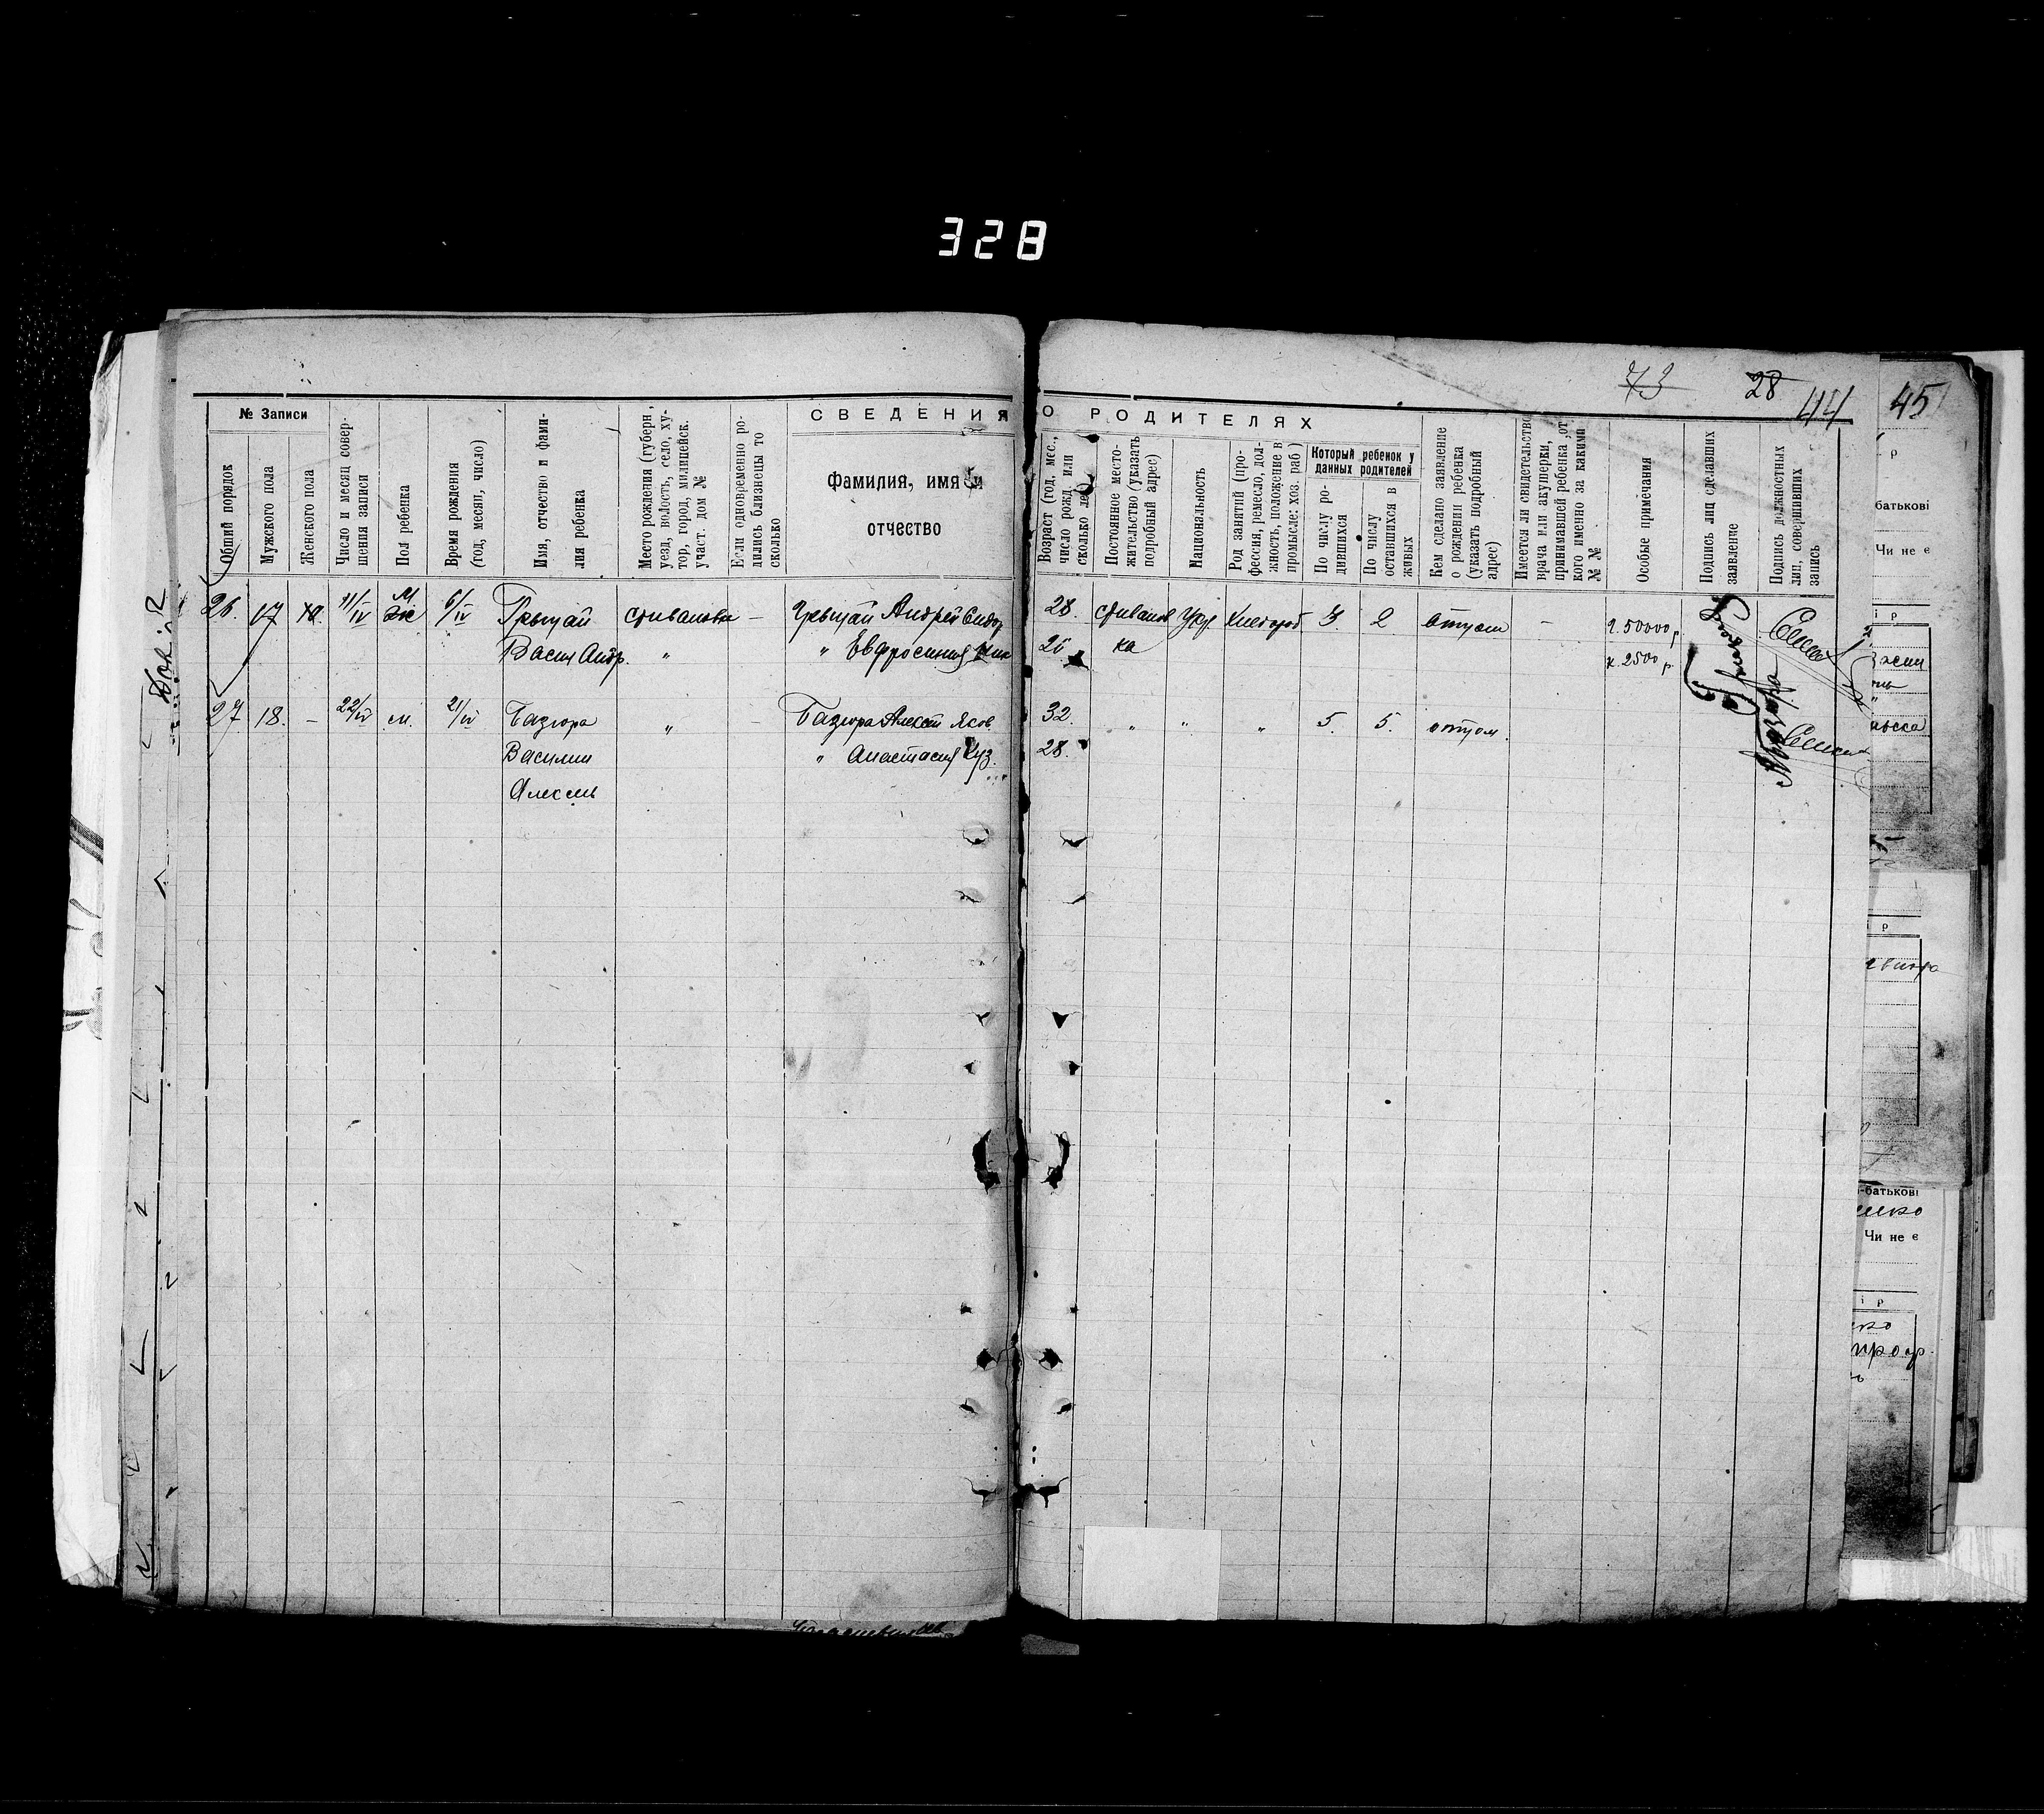 328
73 28 44 45
СВЕДЕНИЯ О РОДИТЕЛЯХ
№ Записи
Общий порядок
Мужского пола
Женского пола
Число и месяц совер-
шения записи
Пол ребенка
Время рождения
(год, месяц, число)
Имя, отчество и фами-
лия ребенка
Место рождения (губерн.,
уезд, волость, село, ху-
тор, город, милицейск.
участ. дом №
Если одновременно ро-
дились близнецы то
сколько
Фамилия, имя и
отчество
Возраст (год, мес.,
число рожд. или
сколько лет
Постоянное место-
жительство (указать
подробный адрес)
Национальность
Род занятий (про-
фессия, ремесло, дол-
жность, положение в
промысле: хоз. раб)
Который ребенок у
данных родителей
По числу ро-
дившихся
По числу
оставшихся в
живых
Кем сделано заявление
о рождении ребенка
(указать подробный
адрес)
Имеется ли свидетельство
врача или акушерки,
принимавшей ребенка, от
кого именно за каким
№ №
Особые примечания
Подпись лиц сделавших
заявление
Подпись должностных
лиц, совершивших
запись
26. 17 11/IV М 6/IV Грыцай – Грыцай Андрей Сидор 28. Укр. Хлебороб 3. 2 отцом – г. 50000 р
Васил Андр. " " Евфросиния Ник 26 ка к. 2500 р.
27 18. – 22/IV м. 21/IV Базюра " – Базюра Алексей Яков 32. " " " 5. 5. отцом
Василий " Анастасия Куз. 28.
Алексеь
батькові
Чи не є
і р
-батькові
Чи не є
і р